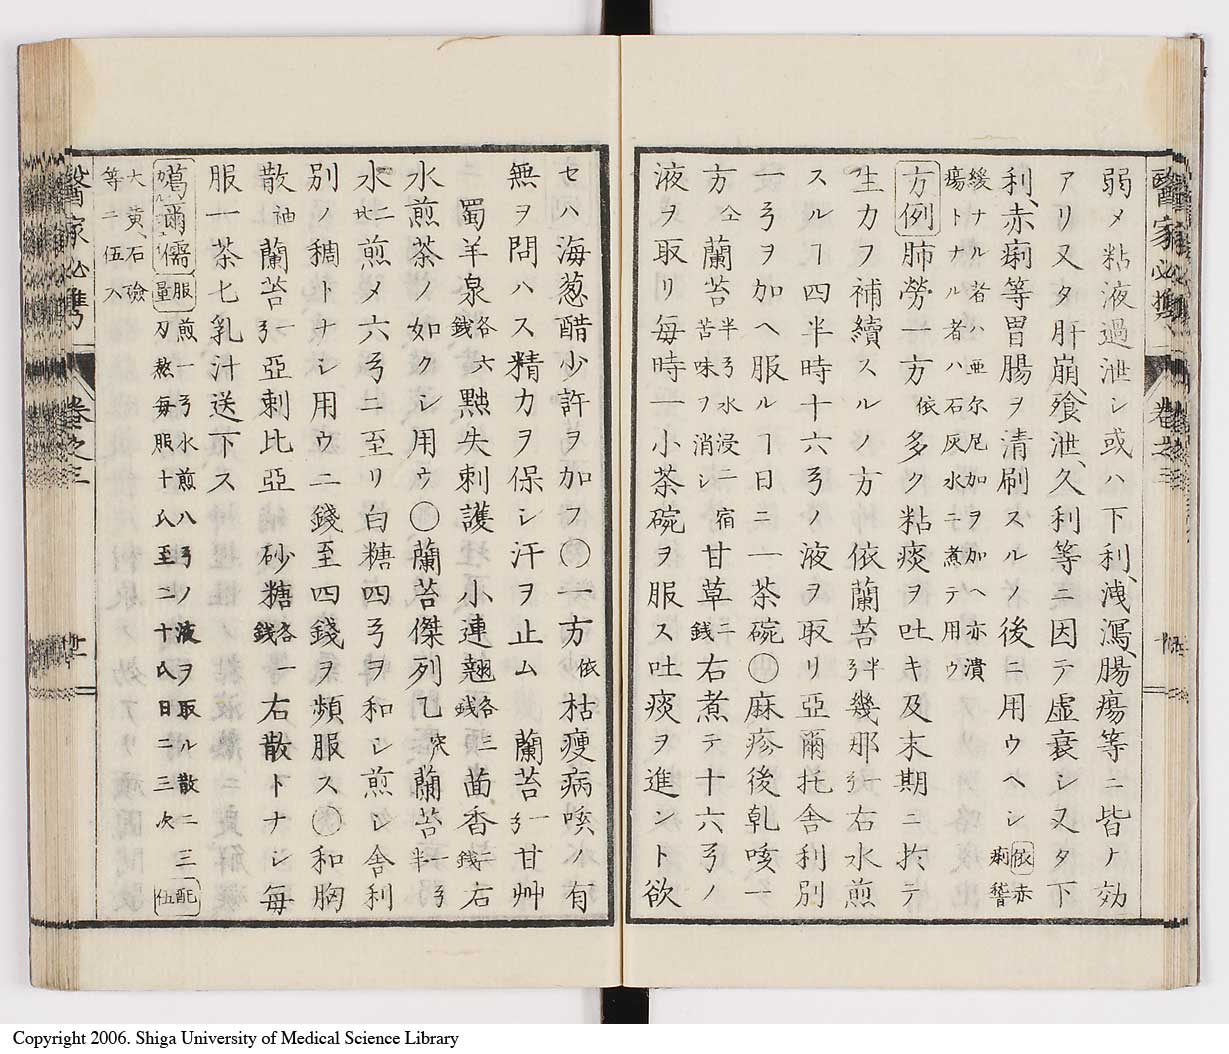 弱メ粘液過泄シ或ハ下利、洩瀉、腸瘍等ニ皆ナ効
アリ又タ肝崩、飱泄、久利等ニ因テ虚衰シ又タ下
利、赤痢等胃腸ヲ清刷スルノ後ニ用ウヘシ依赤痢
緩ナル者ハ亜尔尼加ヲ加ヘ亦潰
瘍トナル者ハ石灰水ニ煮テ用ウ
方例 肺勞一方依多ク粘痰ヲ吐キ及末期ニ扵テ
生力フ補續スルノ方 依蘭苔半弓幾那一弓右水煎
スルヿ四半時十六弓ノ液ヲ取リ亞爾托舎利別
一弓ヲ加ヘ服ルヿ日ニ一茶碗〇麻疹後乹咳一
方仝 蘭苔半弓水浸一宿苦味ヲ消シ甘草二錢右煮テ十六弓ノ
液ヲ取リ毎時一小茶碗ヲ服ス吐痰ヲ進ント欲
セハ海葱醋少許ヲ加フ〇一方依枯痩病咳ノ有
無ヲ問ハス精力ヲ保シ汗ヲ止ム 蘭苔一弓甘艸
蜀羊泉各六錢㸃失刺護 小連翹各三錢茴香二錢右
水煎茶ノ如クシ用ウ〇蘭苔傑列乙突蘭苔一弓半
水二比煎メ六弓ニ至リ白糖四弓ヲ和レ煎レ舎利
別ノ稠トナシ用ウ二錢至四錢ヲ頻服ス〇和胸
散袖蘭苔一弓亞剌比亞 砂糖各一錢右散トナシ毎
服一茶匕乳汁送下ス
噶爾儒 服量 煎一弓水煎八弓ノ液ヲ取ル散二三
刃熬毎服十氏至二十氏日二三次 配伍
大黄、石鹼
等ニ伍入
醫家必携 卷之三
醫家必雋 卷之三 廿一
Copyright 2006. Shiga University of Medical Science Library